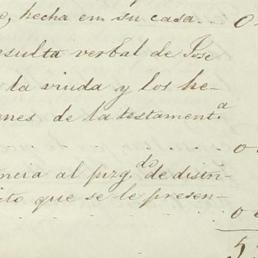 , hecha en su casa... 0
nsulta verbal de Jose
la viuda y los he-
ones de la testament.a
0
ncia al juzg.do de disin-
ito que se le presen-
0
5